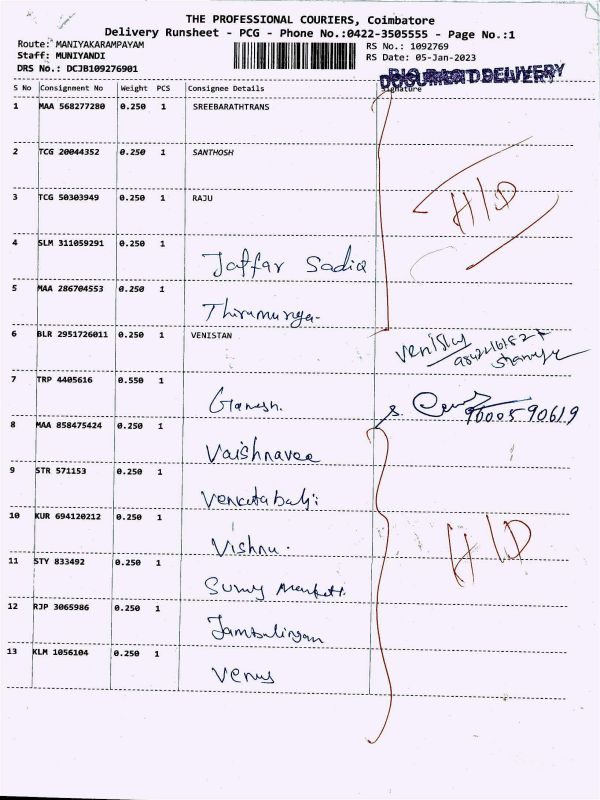 THE PROFESSIONAL COURIERS, Coimbatore
Delivery Runsheet - PCG - Phone No.:0422-3505555 - Page No.:1
Route: MANIYAKARAMPAYAM
Staff: MUNIYANDI
DRS No.: DCJB109276901
RS No.: 1092769
RS Date: 05-Jan-2023
DELIVERY
S No Consignment No Weight PCS Consignee Details Signature
1 MAA 568277280 0.250 1 SREEBARATHTRANS
2 TCG 20044352 0.250 1 SANTHOSH
3 TCG 50303949 0.250 1 RAJU
H/D
4 SLM 311059291 0.250 1 Jaffar Sadiq
5 MAA 286704553 0.250 1
6 BLR 2951726011 0.250 1 VENISTAN
7 TRP 4405616 0.550 1 Ganesh.
8 MAA 858475424 0.250 1 Vaishnavee
9 STR 571153 0.250 1 Venkatabalji
10 KUR 694120212 0.250 1 Vishnu.
H/D
11 STY 833492 0.250 1
12 RJP 3065986 0.250 1 Jambulingam
13 KLM 1056104 0.250 1 Venus